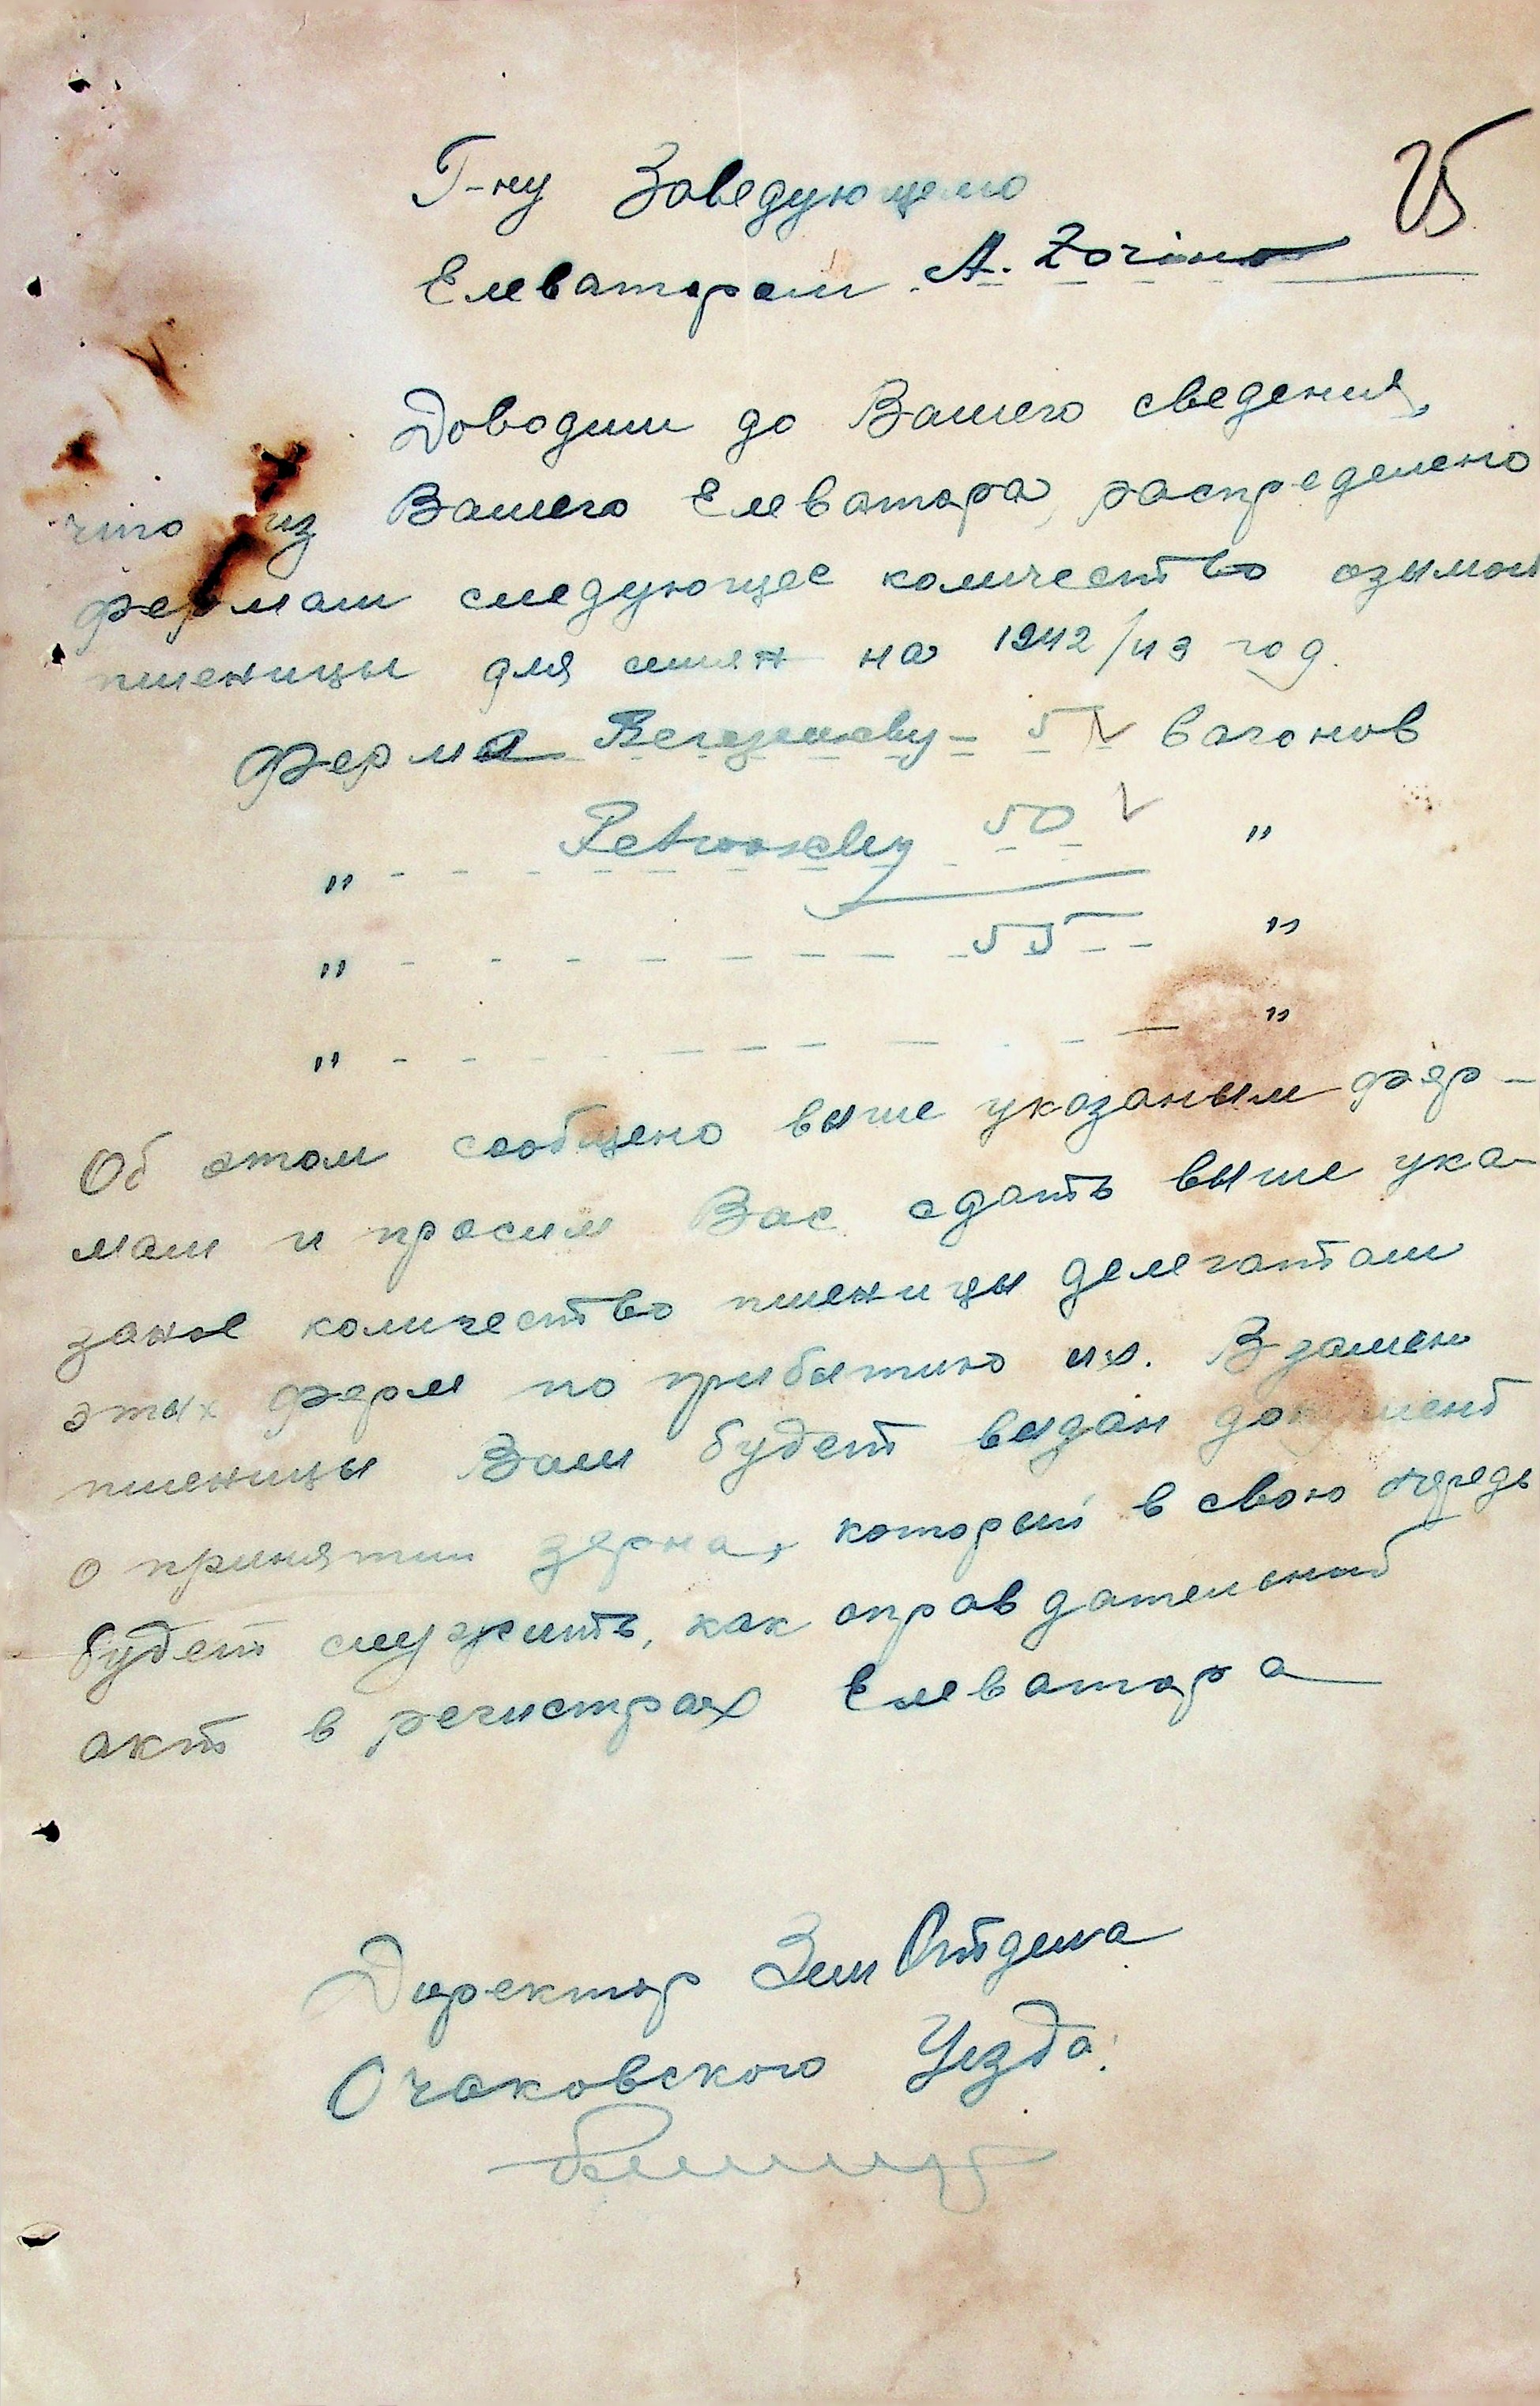 25
Г-ну Заведующему
Елеватором A. Zorino
Доводим до Вашего сведения,
что из Вашего Елеватора, распределено
фермам следующее количество озимой
пшеницы для семян на 1942/43 год.
Ферма - 5 вагонов
" Petrovschy 50 "
" 55 "
" "
Об этом сообщено выше указаным фер-
мам и просим Вас сдать выше ука-
заное количество пшеницы делегатам
этих ферм по прибытию их. Взамен
пшеницы Вам будет выдан документ
о принятии зерна, который в свою очередь
будет служить, как оправдательный
акт в регистрах Елеватора
Директор Зем Отдела
Очаковского Уезда: